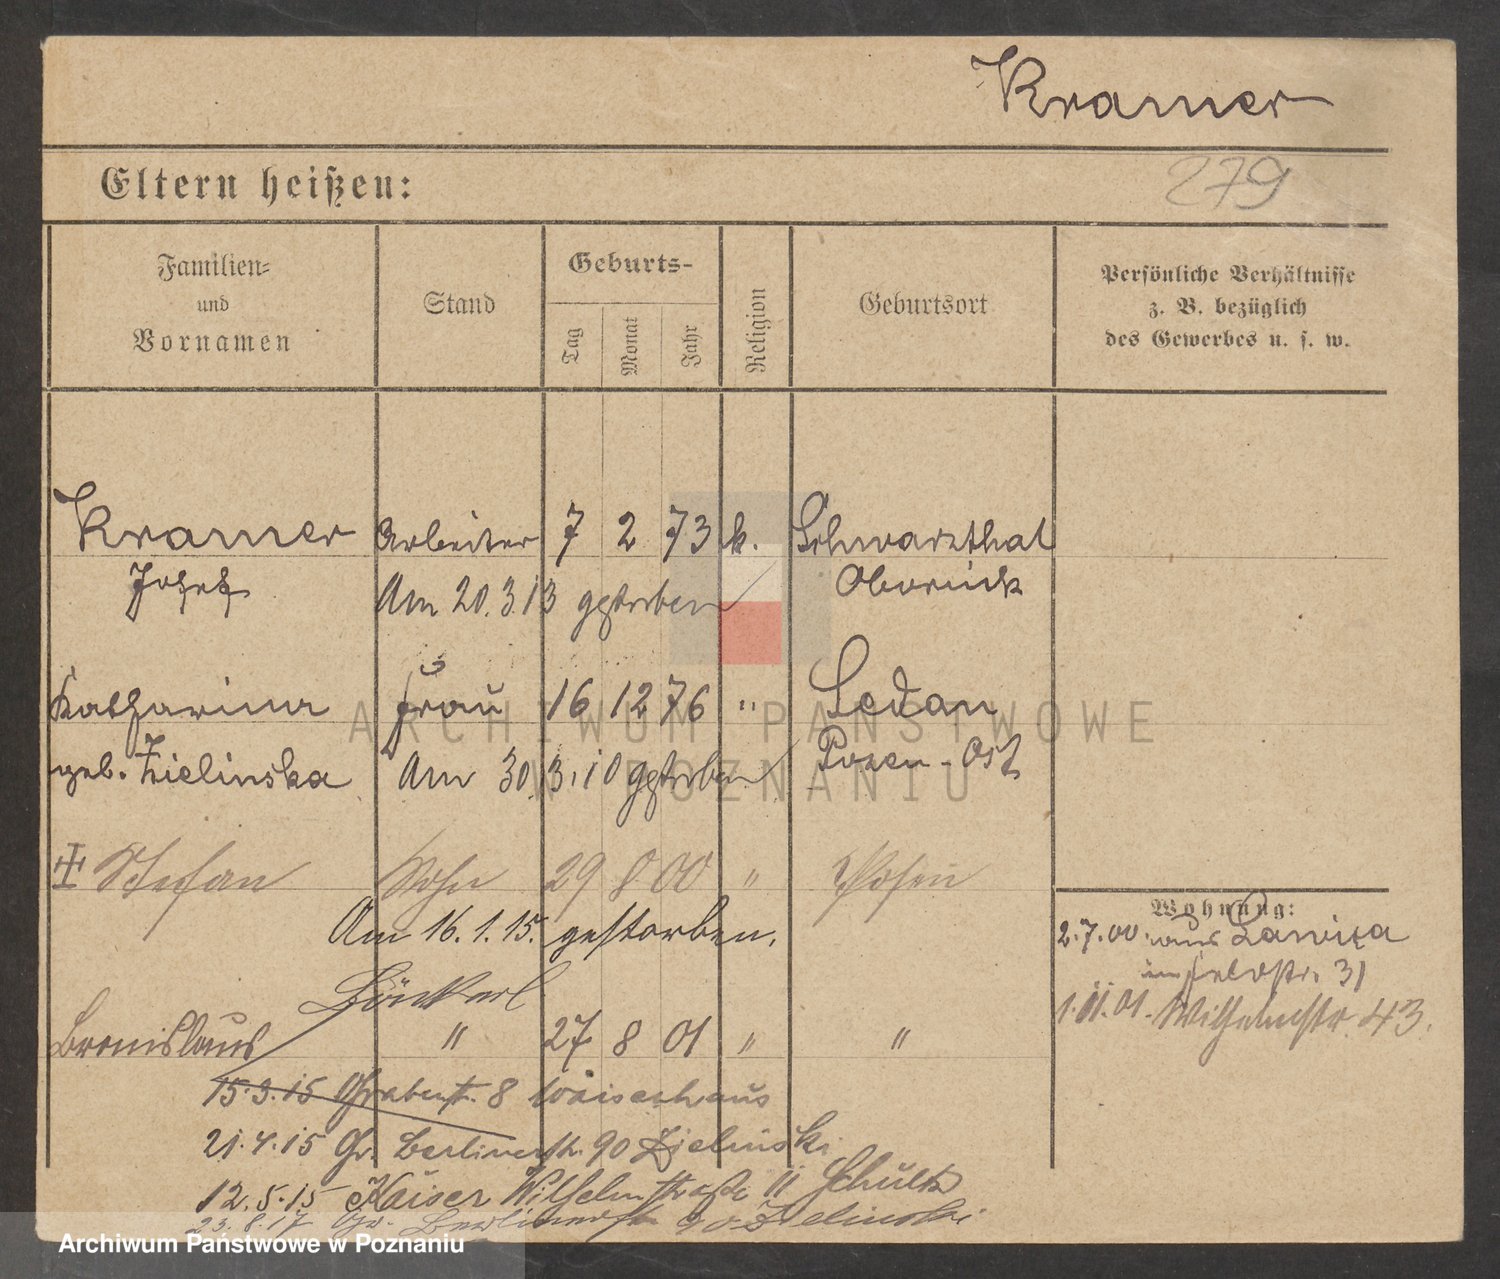 Kramer
Eltern heißen:
279
Familien-
und
Vornamen
Stand
Geburts-
Tag
Monat
Jahr
Religion
Geburtsort
Persönliche Verhältnisse
z. B. bezüglich
des Gewerbes u. s. w.
Kramer Arbeiter 7 2 73 k. Schwarzthal
Josef Am 20.3.13 gestorben Obornick
Katharina Frau 16 12 76 " Sedan
geb. Zielinska Am 30.3.10 gestorben Posen-Ost
Stefan Sohn 29 8 00 " Posen
Am 16.1.15. gestorben.
Wohnung:
2.7.00. aus Lawica
31
1.11.01. Wilhelmstr. 43.
Bronislaus " 27 8 01 " "
15.3.15 Grabenstr. 8 Waisenhaus
21.4.15 Gr. Berlinerstr. 90 Zielinski
12.5.15 Kaiser Wilhelmstraße 11 Schultz
23.8.17 Gr. Berlinerstr. 90 Zielinski
ARCHIWUM PAŃSTWOWE
W POZNANIU
Archiwum Państwowe w Poznaniu